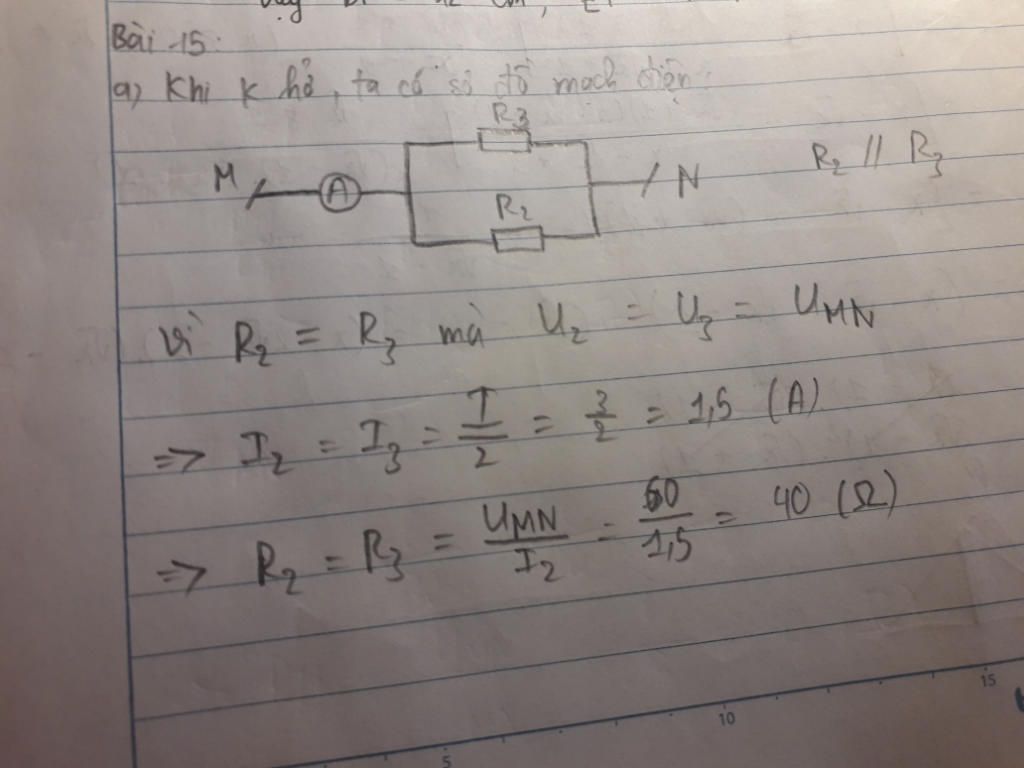 Bài 15:
a) Khi K hở, ta có sơ đồ mạch điện:
R3
M A N R2 // R3
R2
Vì R2 = R3 mà U2 = U3 = UMN
=> I2 = I3 = I/2 = 3/2 = 1,5 (A)
=> R2 = R3 = UMN/I2 = 60/1,5 = 40 (Ω)
5 10 15